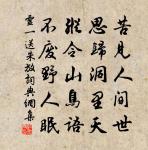 苦見人間世
思歸洞里天
縱令山鳥語
不廢野人眠
靈一送朱放詞典網集